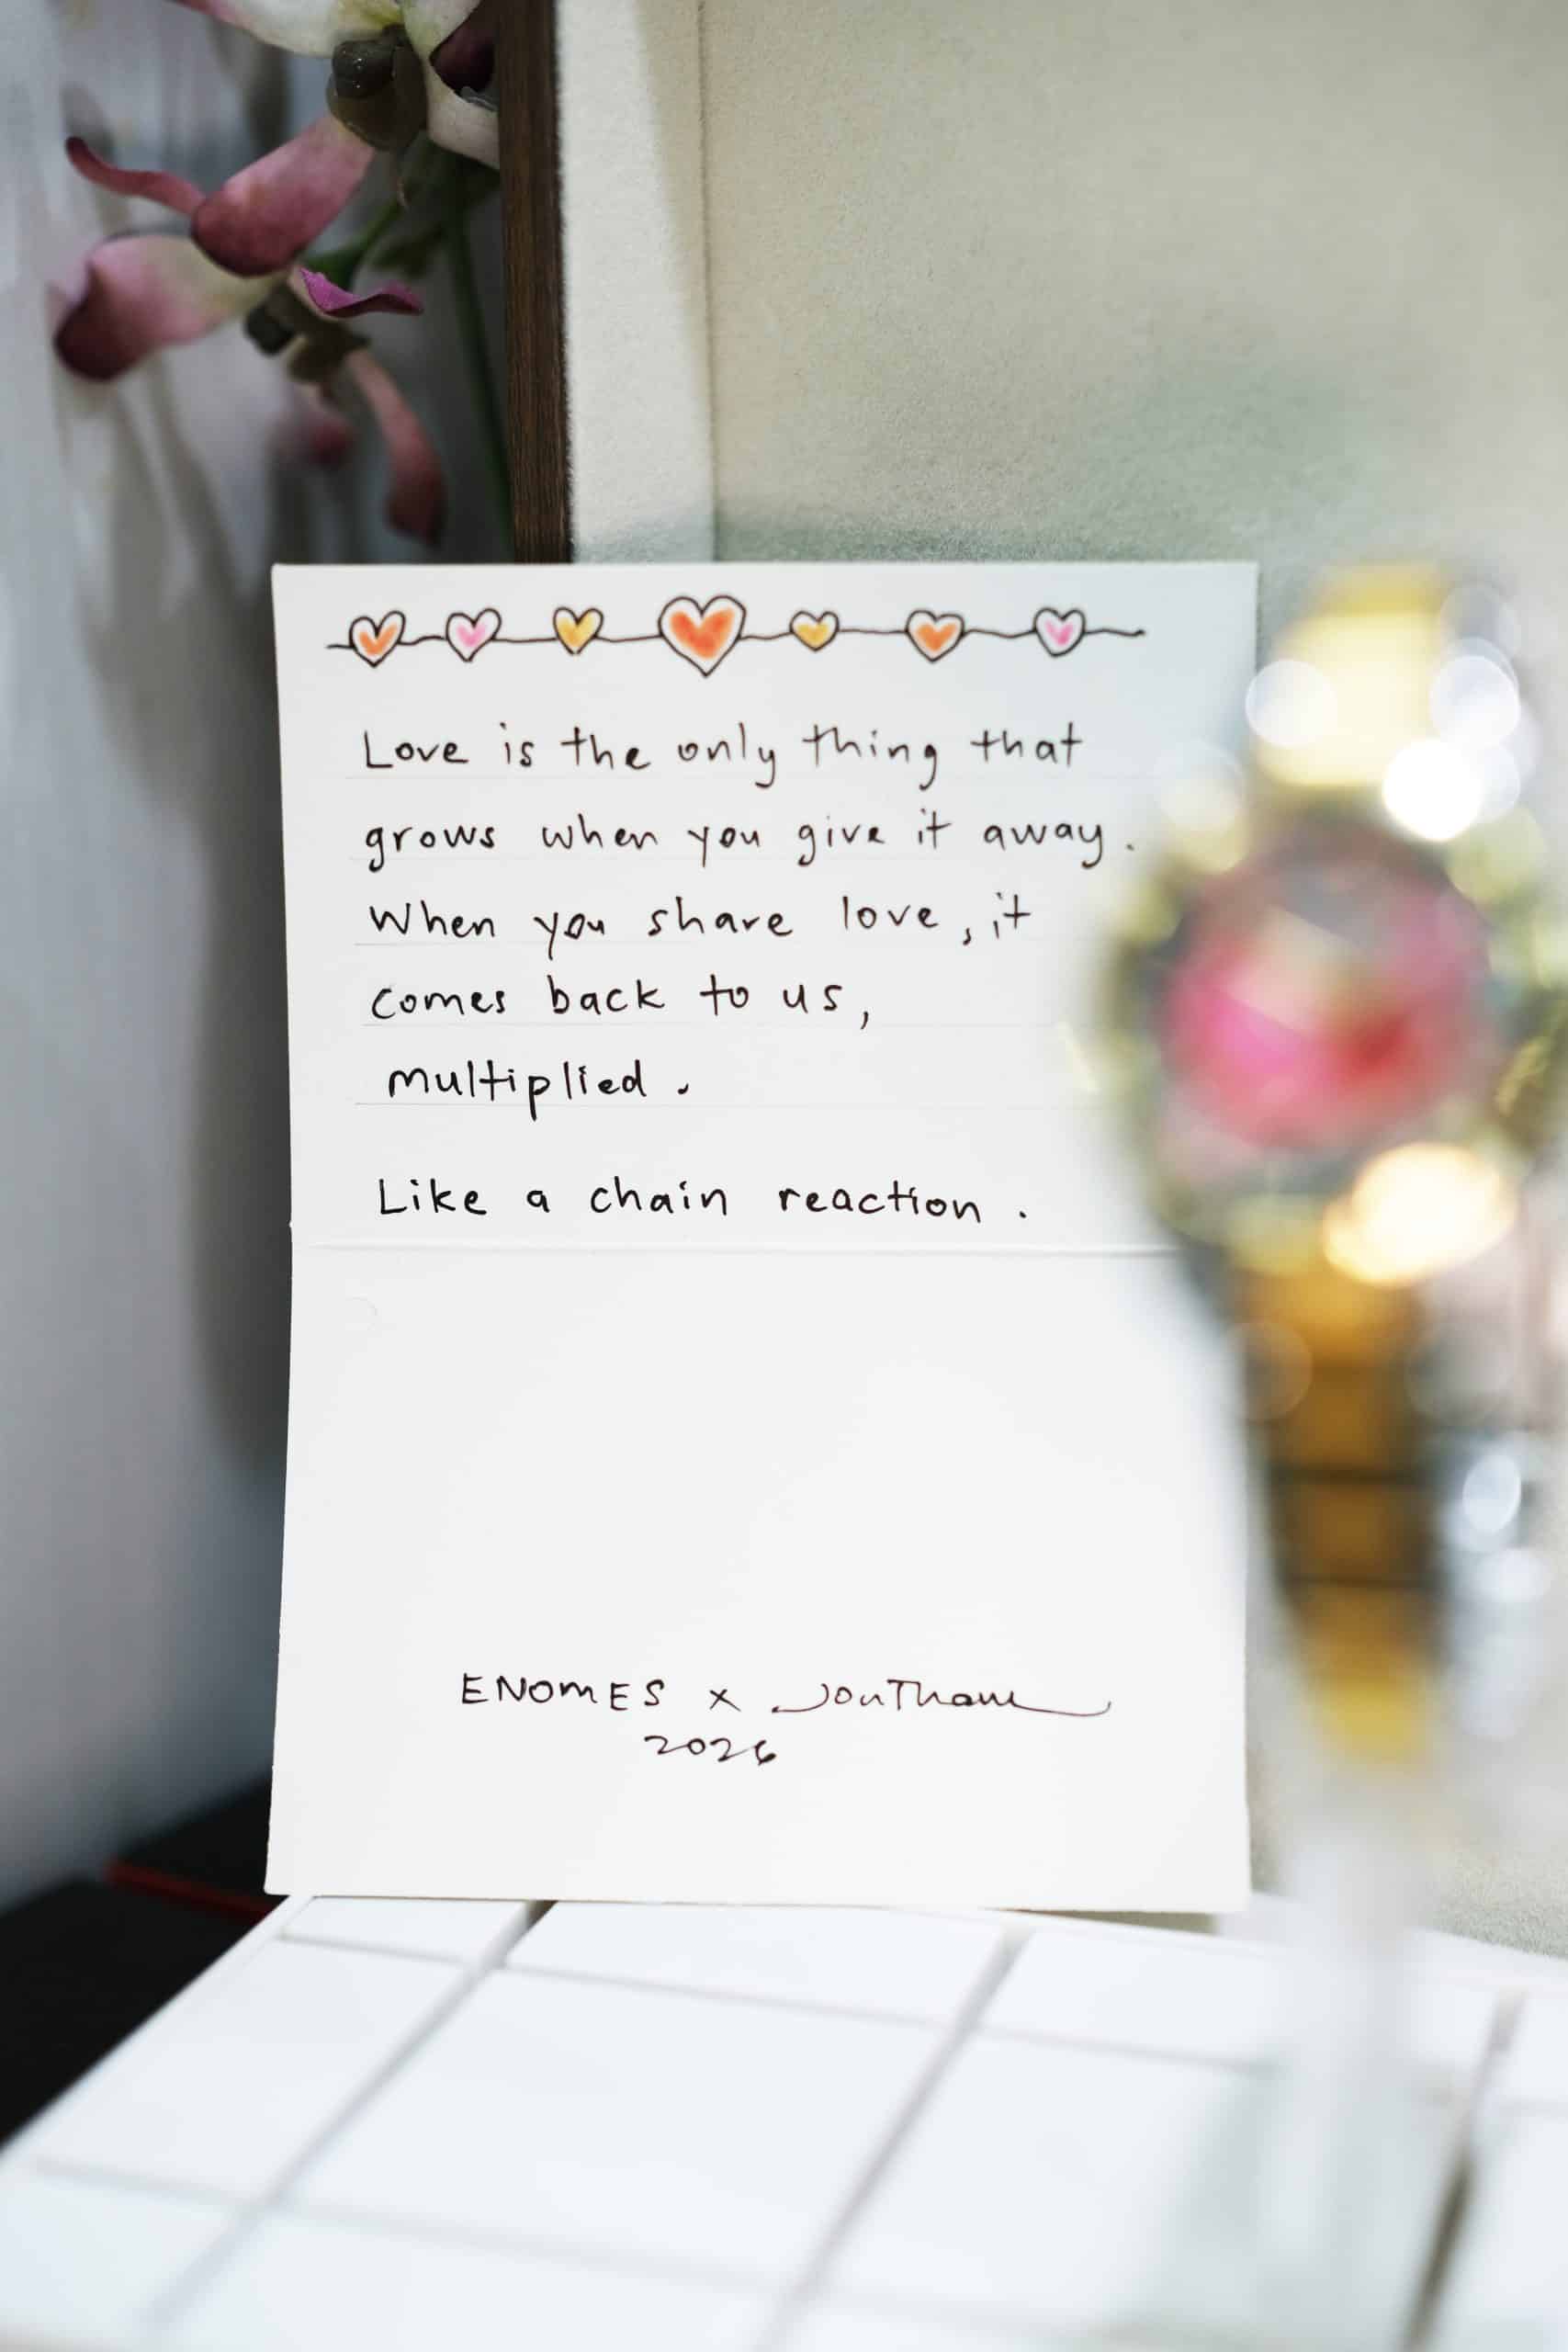 Love is the only thing that
grows when you give it away.
When you share love, it
comes back to us,
multiplied.
Like a chain reaction.
ENOMES x
2026